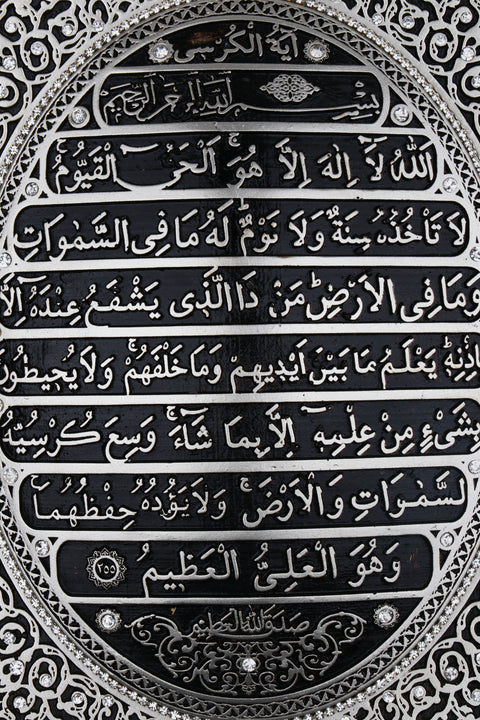 اٰيَةُ الْكُرْسِى
بِسْمِ اللهِ الرَّحْمٰنِ الرَّحِيمِ
اَللّٰهُ لَٓا اِلٰهَ اِلَّا هُوَۚ اَلْحَىُّ الْقَيُّومُۚ
لَا تَأْخُذُهُ سِنَةٌ وَلَا نَوْمٌۜ لَهُ مَا فِى السَّمٰوَاتِ
وَمَا فِى الْاَرْضِۜ مَنْ ذَا الَّذِى يَشْفَعُ عِنْدَهُٓ اِلَّا
بِاِذْنِهِۜ يَعْلَمُ مَا بَيْنَ اَيْدِيهِمْ وَمَا خَلْفَهُمْۚ وَلَا يُحِيطُونَ
بِشَىْءٍ مِنْ عِلْمِهِٓ اِلَّا بِمَا شَٓاءَۚ وَسِعَ كُرْسِيُّهُ
السَّمٰوَاتِ وَالْاَرْضَۚ وَلَا يَؤُدُهُ حِفْظُهُمَاۚ
وَهُوَ الْعَلِىُّ الْعَظِيمُ ٢٥٥
صَدَقَ اللهُ الْعَظِيم